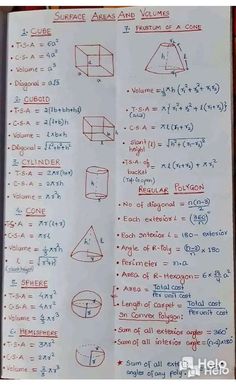 SURFACE AREAS AND VOLUMES
1. CUBE
• T·S·A = 6a²
• C·S·A = 4a²
• Volume = a³
• Diagonal = a√3
2. CUBOID
• T·S·A = 2(lb+bh+hl)
• C·S·A = 2(l+b)h
• Volume = l×b×h
• Diagonal = √l²+b²+h²
3. CYLINDER
• T·S·A = 2πr(r+h)
• C·S·A = 2πrh
• Volume = πr²h
4. CONE
T·S·A = πr(l+r)
C·S·A = πrl
Volume = 1/3 πr²h
l = √r²+h²
(slant height)
5. SPHERE
T·S·A = 4πr²
C·S·A = 4πr²
Volume = 4/3 πr³
6. HEMISPHERE
T·S·A = 3πr²
C·S·A = 2πr²
Volume = 2/3 πr³
7. FRUSTUM OF A CONE
• Volume = 1/3 πh (r₁² + r₂² + r₁r₂)
• T·S·A = π{r₁² + r₂² + l(r₁+r₂)}
• C·S·A = πl(r₁+r₂)
• slant height (l) = √h²+(r₁-r₂)²
• T·S·A of bucket = πl(r₁+r₂) + πr₂²
REGULAR POLYGON
• No of diagonal = n(n-3)/2
• Each exterior L = (360/n)°
• Each Interior L = 180 - exterior
• Angle of R-Poly = (n-2)/n × 180
• Perimeter = n×a
• Area of R-Hexagon = 6×√3/4 a²
• Area = Total cost / Per unit cost
• Length of Carpet = Total cost / Per unit cost
In Convex Polygon:
• Sum of all exterior angle = 360°
• Sum of all interior angle = (n-2)×180
★ Sum of all ext
angles of any poly
Helo
Helo